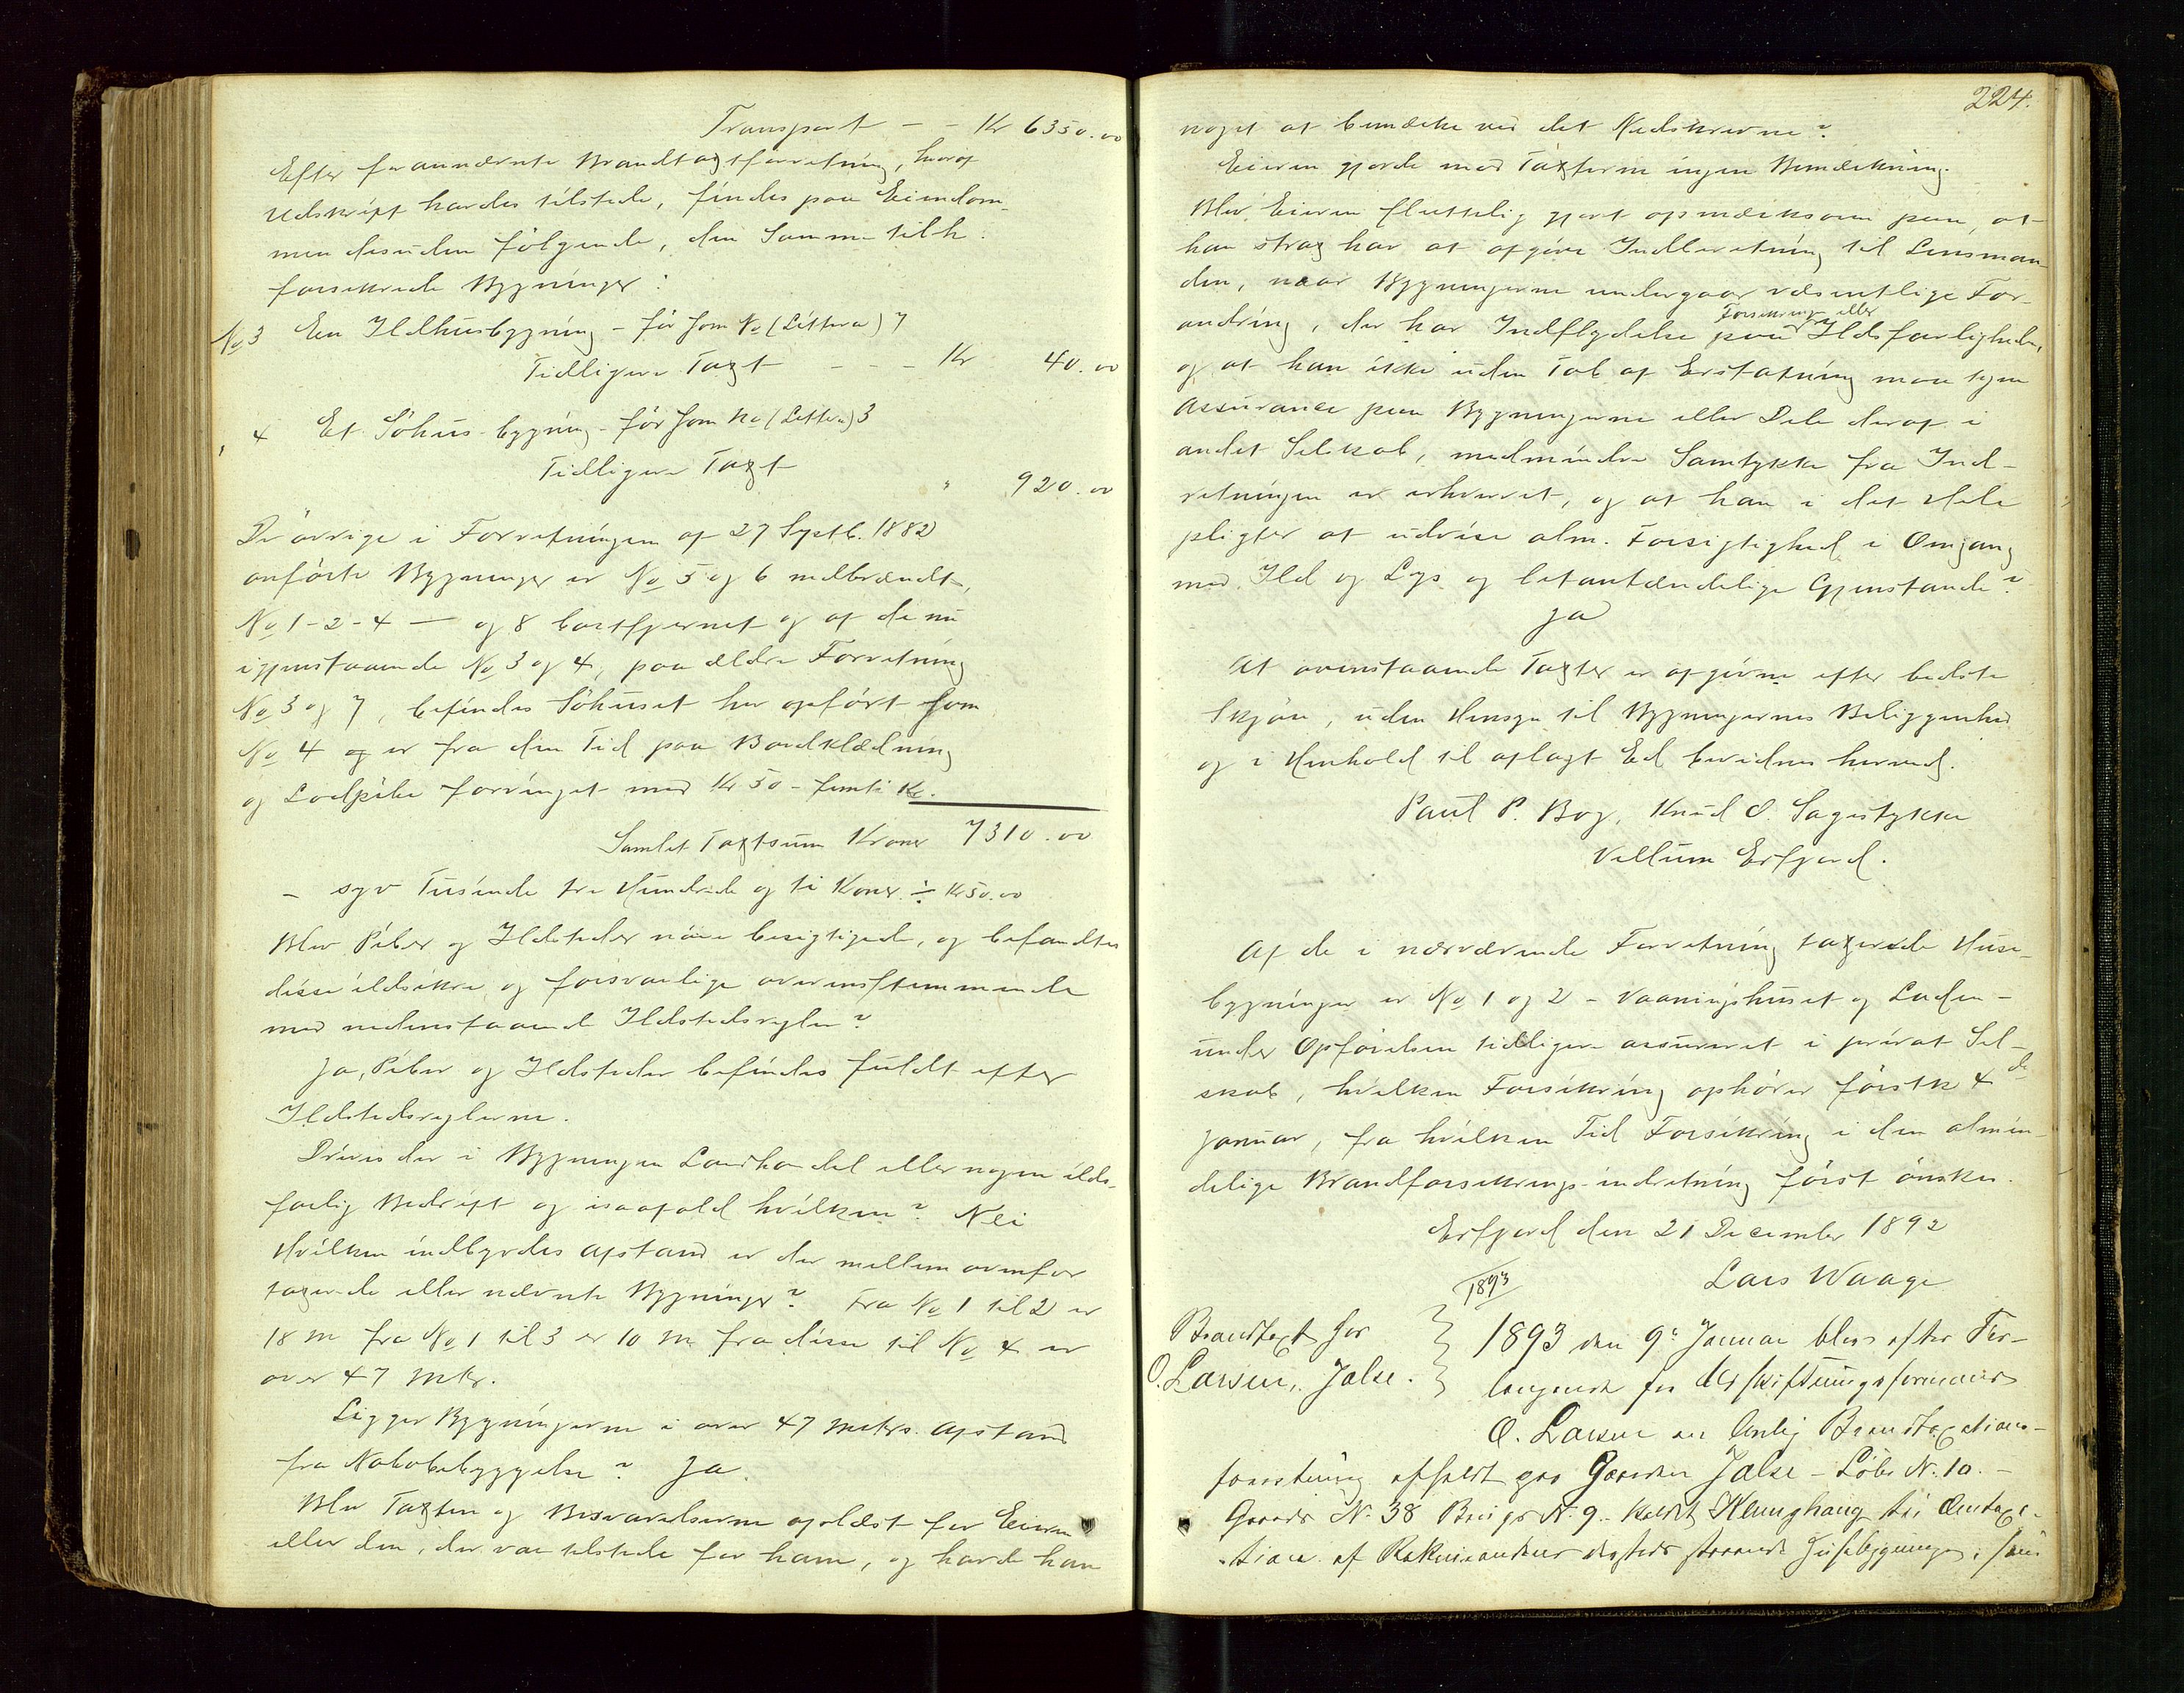 Transport - - Kr 6350.00
Efter forannævnte Brandtaxtforretning, hvoraf
Udskrift havdes tilstede, findes paa Eiendom-
men desuden følgende, den samme tilh.
forsikrede Bygninger:
No 3 En Ildhusbygning - før som No (Littera) 7
Tidligere Taxt - - - Kr 40.00
" 4 Et Søhus-bygning - før som No (Littera) 3
Tidligere Taxt " 920.00
De øvrige i Forretningen af 27 Septb. 1882
anførte Bygninger er No 5 og 6 nedbrændt,
No 1-2-4 — og 8 bortfjernet og af de nu
igjenstaaende No 3 og 4, paa ældre Forretning
No 3 og 7, befindes Søhuset her opført som
No 4 og er fra den Tid paa Bordklædning
og Lodpibe forringet med Kr 50 - femti Kr.
Samlet Taxtsum Kroner 7310.00
- syv Tusinde tre Hundrede og ti Kroner ÷ Kr 50.00
Blev Piber og Ildsteder nøie besigtigede, og befandtes
disse ildsikre og forsvarlige overensstemmende
med nedenstaaende Ildstedsregler?
Ja, Piber og Ildsteder befindes fuldt efter
Ildstedsreglerne.
Drives der i Bygningen Landhandel eller nogen ilds-
farlig Bedrift og isaafald hvilken? Nei
Hvilken indbyrdes Afstand er der mellem ovenfor
taxerede eller nævnte Bygninger? Fra No 1 til 2 er
18 m fra No 1 til 3 er 10 m fra disse til No 4 er
over 47 mtr.
Ligger Bygningerne i over 47 meters Afstand
fra Nabobebyggelse? Ja.
Blev Taxten og Besvarelserne oplæst for Eieren
eller den, der var tilstede for ham, og havde han
224.
noget at bemærke ved det Nedskrevne?
Eieren gjorde mod Taxterne ingen Bemærkning.
Blev Eieren sluttelig gjort opmærksom paa, at
han strax har at afgive Indberetning til Lensman-
den, naar Bygningerne undergaar væsentlige For-
andring, der har Indflydelse paa Forsikrings eller Ildsfarligheden,
og at han ikke uden Tab af Erstatning maa tegne
Assurance paa Bygningerne eller Dele deraf i
andet Selskab, medmindre Samtykke fra Ind-
retningen er erhvervet, og at han i det Hele
pligter at udvise alm. Forsigtighed i Omgang
med Ild og Lys og letantændelige Gjenstande?
Ja
At ovenstaaende Taxter er afgivne efter bedste
Skjøn, uden Hensyn til Bygningernes Beliggenhed
og i Henhold til aflagt Ed bevidnes herved.
Paul P. Bog, Knud O. Sagestykke
Vellum Erfjord.
Af de i nærværende Forretning taxerede Huse-
bygninger er No 1 og 2 - Vaaningshuset og Laden -
under Opførelsen tidligere assureret i privat Sel-
skab, hvilken Forsikring ophører førstk. 4de
Januar, fra hvilken Tid Forsikring i den almin-
delige Brandforsikrings-indretning først ønskes.
Erfjord den 21 December 1892
Lars Waage
1893
Brandtaxt for
O. Larsen, Jalse.
1893 den 9de Januar blev efter For-
langende fra Udskiftningsformand
O. Larsen en lovlig Brandtaxations-
forretning afholdt paa Gaarden Jalse - Løbe N. 10. -
Gaards N. 38 Brugs N. 9. kaldt til Omtaxa-
tion af Rekvirentens dersteds staaende Husebygninger, som